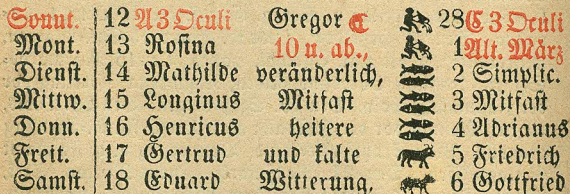 Sonnt. 12 A 3 Oculi Gregor ☾ 28 C 3 Oculi
Mont. 13 Rosina 10 u. ab., 1 Alt. März
Dienst. 14 Mathilde veränderlich, 2 Simplic.
Mittw. 15 Longinus Mitfast 3 Mitfast
Donn. 16 Henricus heitere 4 Adrianus
Freit. 17 Gertrud und kalte 5 Friedrich
Samst. 18 Eduard Witterung, 6 Gottfried